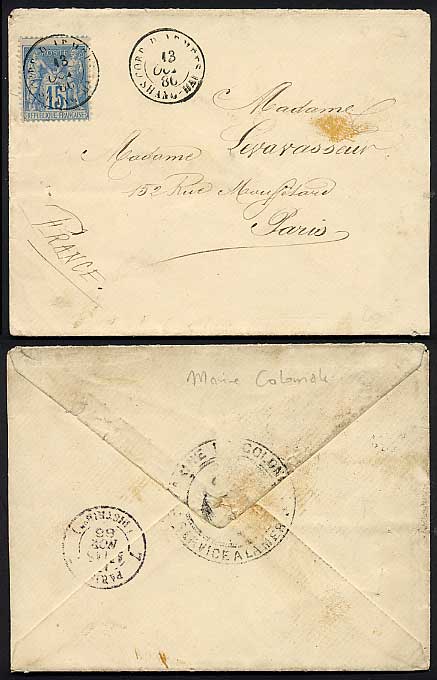 POSTES
15
REPUBLIQUE FRANCAISE
CORR. D. ARMEES
13
OCT
86
SHANG-HAI
Madame
Levavasseur
Madame
152 Rue Mouffetard
Paris
FRANCE
Marine Coloniale
COLON
SERVICE A LA MER
PARIS
NOV
86
DISTRIBUTION